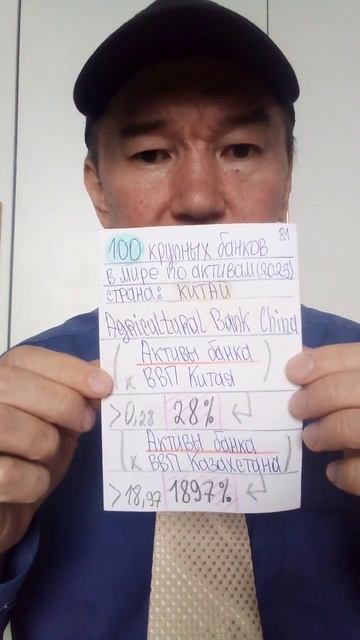 81
100 крупных банков
в мире по активам (2023)
страна: КИТАЙ
Agricultural Bank China
( Активы банка )
к ВВП Китая
>0,28 28%
( Активы банка )
к ВВП Казахстана
>18,97 1897%